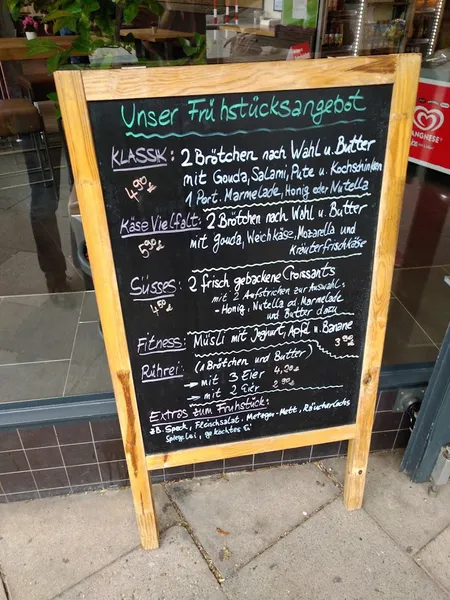 Unser Frühstücksangebot
KLASSIK: 2 Brötchen nach Wahl u. Butter
mit Gouda, Salami, Pute u. Kochschinken
1 Port. Marmelade, Honig oder Nutella
4,90
Käse Vielfalt: 2 Brötchen nach Wahl u. Butter
mit gouda, Weichkäse, Mozarella und
Kräuterfrischkäse
5,90
Süsses: 2 frisch gebackene Croissants
mit 2 Aufstrichen zur Auswahl:
- Honig, Nutella od. Marmelade
und Butter dazu
4,50
Fitness: Müsli mit Joghurt, Apfel u. Banane
3,90
Rührei: (1 Brötchen und Butter)
→ mit 3 Eier 4,20
→ mit 2 Eier 2,90
Extras zum Frühstück:
z.B. Speck, Fleischsalat, Metzger-Mett, Räucherlachs
Spiegelei, gekochtes Ei
LANGNESE